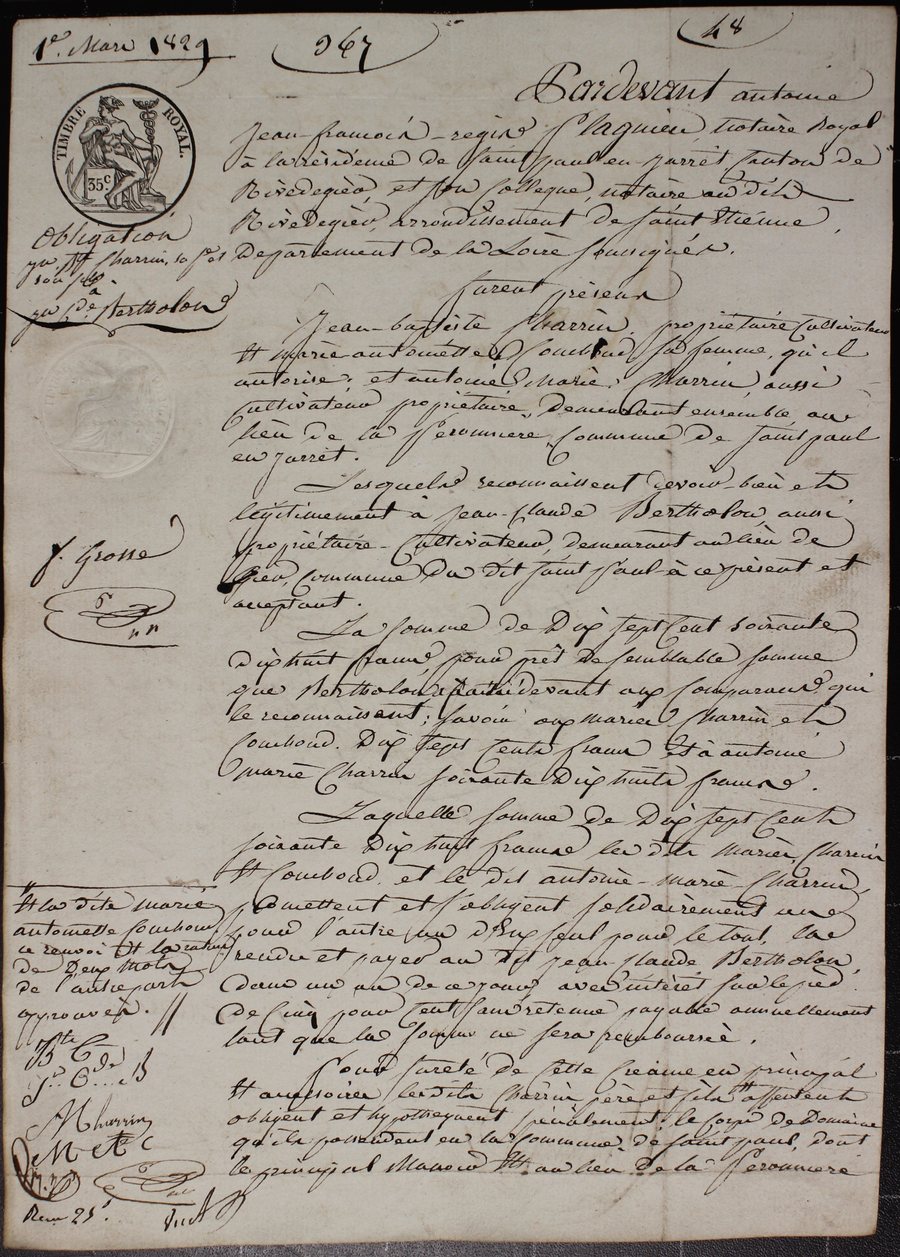 1er. Mars 1829
967
48
TIMBRE ROYAL.
35c
Obligation
par Bte Charrin, sa fe et
son fils
à
par Cde Bertholon
f. Grosse
Pardevant antoine
Jean-françois-regis notaire Royal
à la résidence de saint paul-en-jarrêt, Canton de
Rivedegièr, et son Collegue, notaire au dit
Rivedegièr, arrondissement de saint Etienne,
Departement de la Loire soussignés.
furent présens
Jean-baptiste Charrin, propriétaire Cultivateur
Et marie antoinette Combaud sa femme, qu'il
autorise; et antoine Marie Charrin aussi
Cultivateur propriétaire, demeurant ensemble au
lieu de la Peronniere, Commune de saint paul
en jarrêt.
Lesquels reconnaissent devoir bien et
légitimement à jean-Claude Bertholon aussi
propriétaire-Cultivateur, demeurant au lieu de
Commune du dit saint Paul à ce présent et
acceptant.
La somme de Dix sept Cent soixante
dix huit francs, pour prêt de semblable somme
que Bertholon a fait devant aux Comparans, qui
le reconnaissent; savoir aux mariés Charrin et
Combaud. Dix sept Cents francs Et à antoine
marie Charrin soixante dix huit francs.
Laquelle somme de Dix sept Cents
soixante Dix huit francs les dits mariés Charrin
Et Combaud, et le dit antoine-marie-Charrin,
promettent et s'obligent solidairement une
pour l'autre un d'Eux seul pour le tout, la
rendre et payer au dit jean Claude Bertholon,
dans un an de ce jour avec intérêt sur le pied
de Cinq pour Cent sans retenue payable annuellement
tant que la somme ne sera remboursée.
Pour sureté de Cette Créance en principal
Et accessoires lesdits Charrin père et fils # affectent
obligent et hypothequent spécialement: le Corps de Domaine
qu'ils possedent en la Commune de saint paul, dont
le principal Manoir Est au lieu de la Peronniere
# la dite marie
antoinette Combaud
ce renvoi Et la rature
de Deux mots
de l'autre part
approuvés. //
Bte C
Jn Cde B
M harrin
M et C